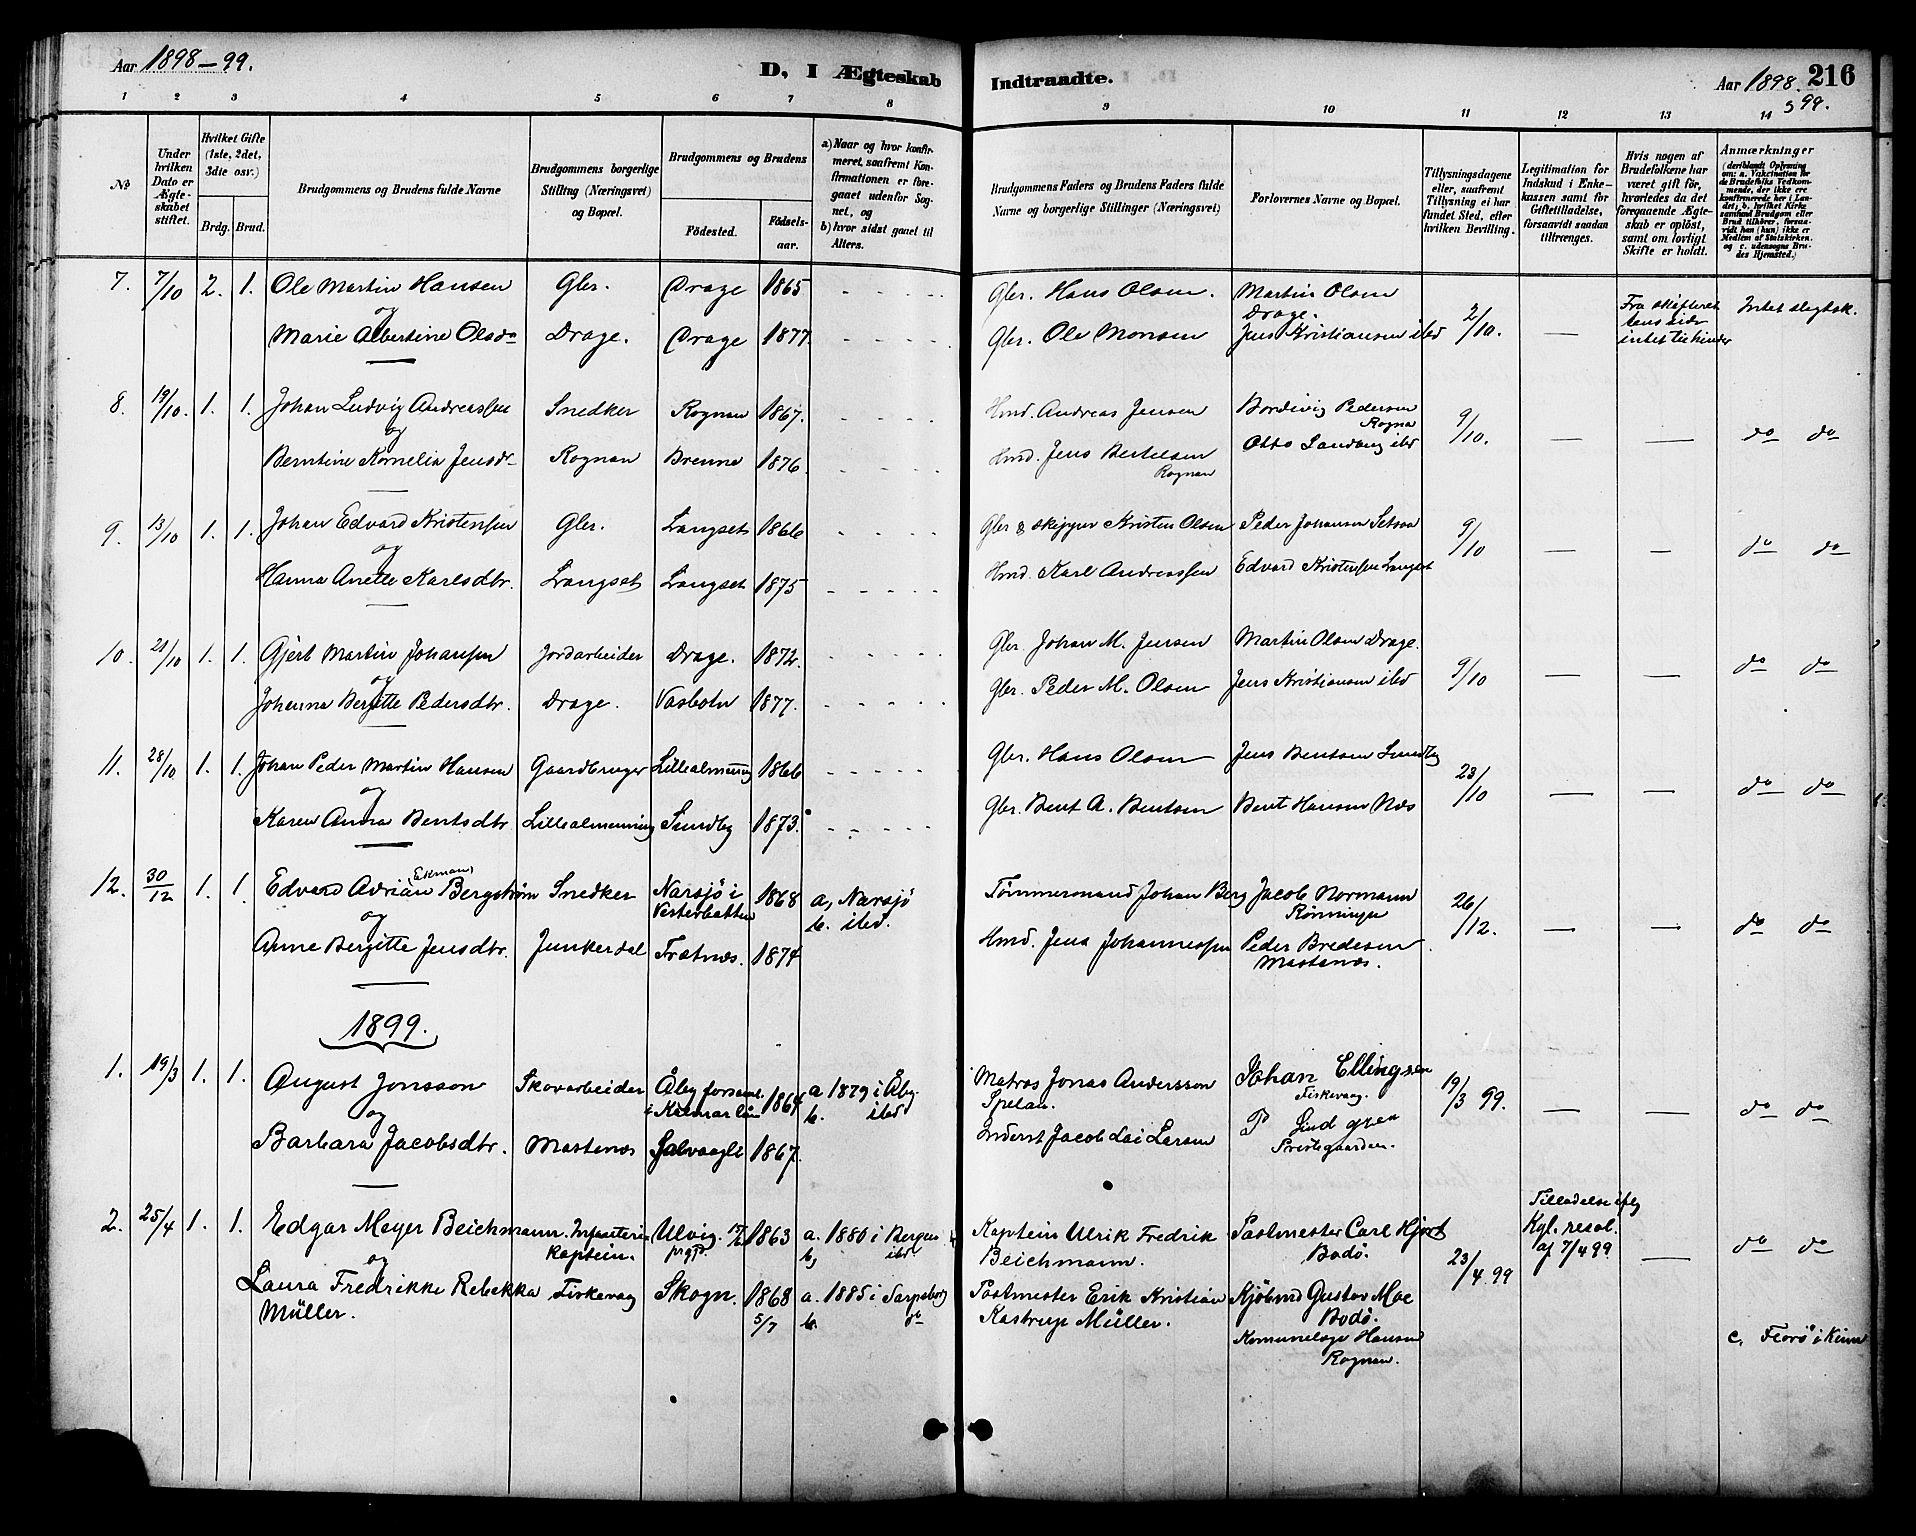 Aar 1898-99.
D, I Ægteskab
Indtraadte.
Aar 1898
216
99.
1 2 3 4 5 6 7 8
9 10 11 12 13 14
No
Under hvilken Dato er Ægteskabet stiftet.
Hvilket Gifte (1ste, 2det, 3die osv.)
Brdg. Brud.
Brudgommens og Brudens fulde Navne
Brudgommens borgerlige Stilling (Næringsvei) og Bopæl.
Brudgommens og Brudens
Fødested.
Fødselsaar.
a) Naar og hvor konfirmeret, saafremt Konfirmationen er foregaaet udenfor Sognet, og
b) hvor sidst gaaet til Alters.
Brudgommens Faders og Brudens Faders fulde Navne og borgerlige Stillinger (Næringsvei)
Forlovernes Navne og Bopæl.
Tillysningsdagene eller, saafremt Tillysning ei har fundet Sted, efter hvilken Bevilling.
Legitimation for Indskud i Enkekassen samt for Giftetilladelse, forsaavidt saadan tiltrænges.
Hvis nogen af Brudefolkene har været gift før, hvorledes da det foregaaende Ægteskab er opløst, samt om lovligt Skifte er holdt.
Anmærkninger (deriblandt Oplysning om: a. Vakcination for de Brudefolks Vedkommende, der ikke ere konfirmerede her i Landet; b. hvilket Kirkesamfund Brudgom eller Brud tilhører, forsaavidt han (hun) ikke er Medlem af Statskirken. og c. udensogns Brudes Hjemsted.)
7. 7/10 2. 1. Ole Martin Hansen Gbr. Drage 1865 Gbr. Hans Olsen. Martin Olsen Drage. 2/10. Fra skifteret tens side intet til hinder Intet slegtsk.
og
Marie Albertine Olsdr Drage. Drage 1877. Gbr. Ole Monsen Jens Kristiansen ibd
8. 19/10. 1. 1. Johan Ludvig Andreassen Snedker Rognan 1867. Hmd. Andreas Jensen Pedersen Rogna 9/10. do do
og
Berntine Kornelia Jensdr Rognan Brenne 1876. Hmd. Jens Bertelsen Rognan Otto Sandvang ibd
9. 13/10 1. 1. Johan Edvard Kristensen Gbr. Langset 1866 Gbr & skipper Kristen Olsen Peder Johansen Setsaa 9/10 do do
og
Hanna Anette Karlsdtr. Langset Langset 1875 Hmd. Karl Andreassen Edvard Kristensen Langset
10. 21/10 1. 1. Gjert Martin Johansen Jordarbeider Drage. 1872. Gbr. Johan M. Jensen Martin Olsen Drage. 9/10 do do
og
Johanna Bergitte Pedersdtr. Drage. Vasbotn 1877. Gbr. Peder M. Olsen Jens Kristiansen ibd
11. 28/10 1. 1. Johan Peder Martin Hansen Gaardbruger Lillealmenning 1866 Gbr. Hans Olsen Jens Bentsen Sundby 23/10 do do
og
Karen Anna Bentsdtr Lillealmenning Sundby 1873. Gbr. Bent A. Bentsen Bent Hansen Næs
12. 30/12 1. 1. Edvard Adrian (Ekman) Bergstrøm Snedker Narsjö i Vesterbotten 1868 a, Narsjö b. ibd. Tømmermand Johan Berg Jacob Normann Rønningen 26/12. do do
og
Anne Bergitte Jensdtr. Junkerdal Trætnæs. 1874 Hmd. Jens Johannessen Peder Bredesen Mastenæs.
1899.
1. 19/3 1. 1. August Jonsson Skovarbeider Åby forsaml. i Kalmar län 1864 a 1879 i Åby. b. ibd Matros Jonas Andersson Spelan. Johan Ellingsen Fiskevaag. 19/3 99. do do
og
Barbara Jacobsdtr. Mastenæs Salvaagli 1867. Inderst Jacob Lai Larsen P Lindgren Prestegaarden.
2. 25/4 1. 1. Edgar Meyer Beichmann Infanteri kaptein. Ulvig. prgj. 1863 a. 1880 i Bergen b, ibd Kaptein Ulrik Fredrik Beichmann. Postmester Carl Hjort Bodø. 23/4 99 Tilladelse iflg Kgl. resol. af 7/4 99 do do
og
Laura Fredrikke Rebekka Müller. Fiskevaag Skogn. 1868 5/7 a. 1885 i Sarpsborg b. do Postmester Erik Kristian Kastrup Müller. Kjøbmd Gustav Moe Bodø.
Rognan.
c. Florø i Kinn